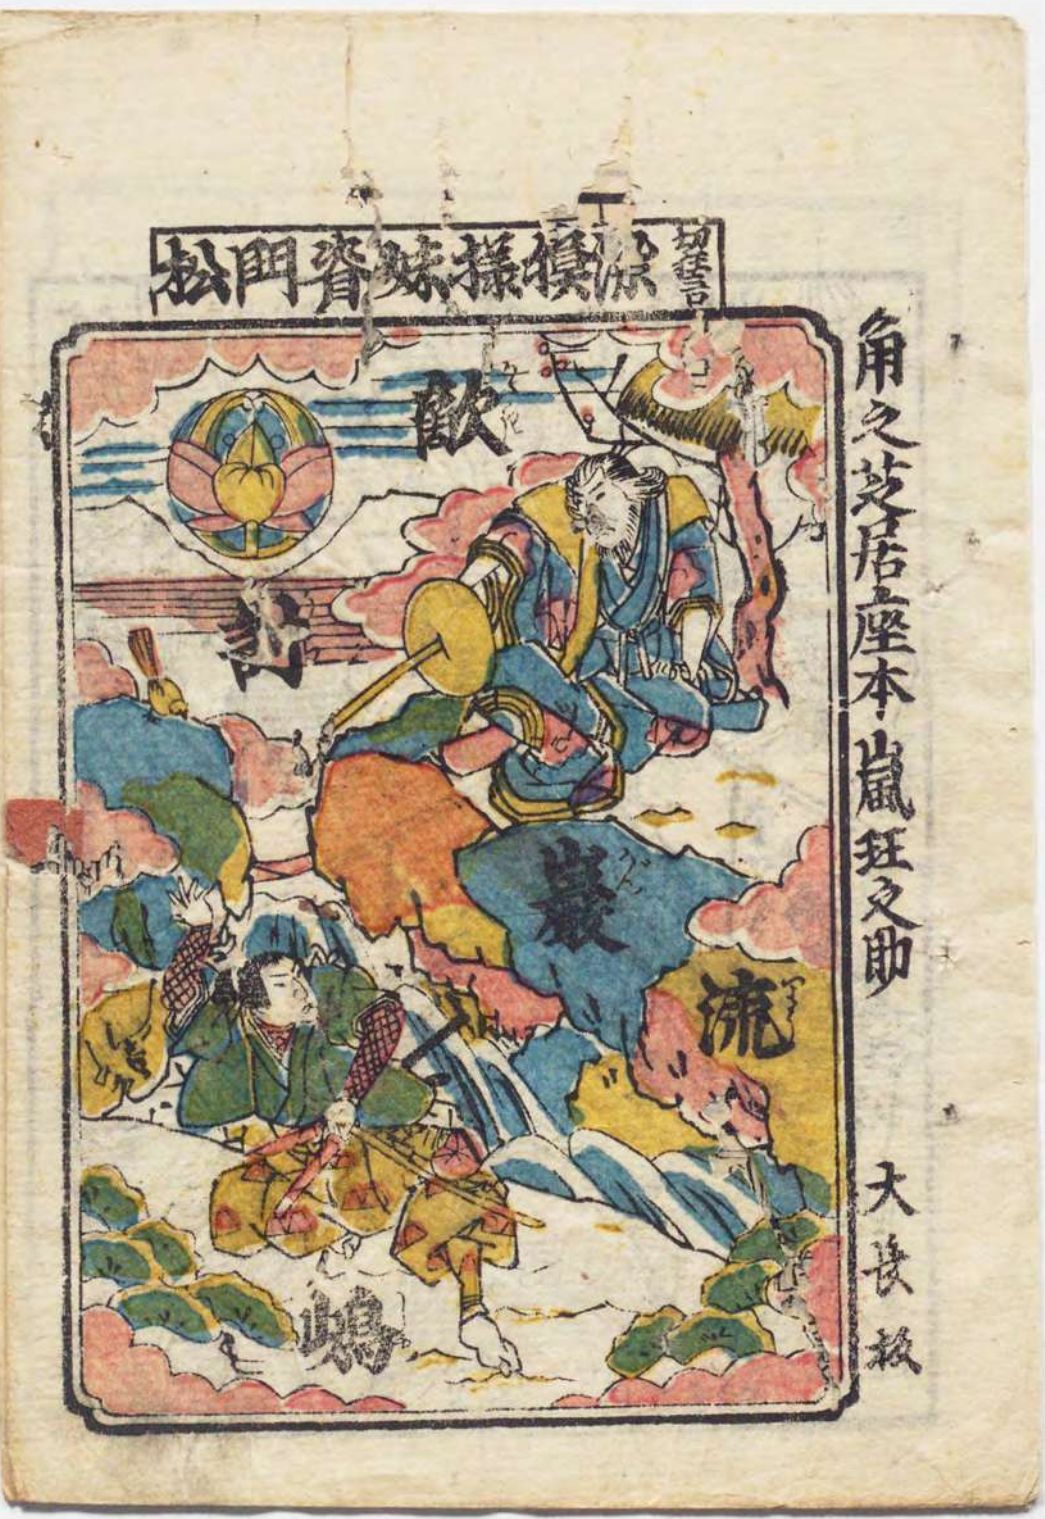 切狂言
染模様妹脊門松
角之芝居座本嵐珏之助
大長板
敵討
巌流
嶋
がん
りう